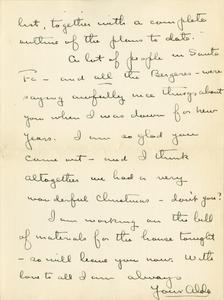 list, together with a complete
outline of the plans to date.
A lot of people in Santa
Fe - and all the Bergeres - were
saying awfully nice things about
you when I was down for new
years. I am so glad you
came out - and I think
altogether we had a very
wonderful Christmas - don't you?
I am working on the bill
of materials for the house tonight
- so will leave you now. With
love to all I am always
Your Aldo